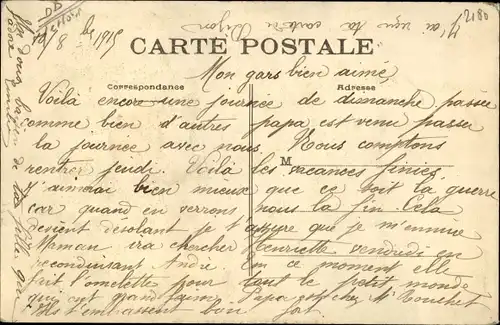 J'ai reçu ta carte de Dijon
2180
8
1915
CARTE POSTALE
Mon gars bien aimé
Correspondance
Adresse
M
Voilà encore une journée de dimanche passée
comme bien d'autres papa est venu passer
la journée avec nous. Nous comptons
rentrer jeudi. Voilà les vacances finies
J'aimerai bien mieux que ce soit la guerre
car quand en verrons nous la fin. Cela
devient désolant je t'assure que je m'ennuie
Maman ira chercher Henriette vendredi en
reconduisant André. En ce moment elle
fait l'omelette pour tout le petit monde
qui ont grand faim. Papa est chez Mr
Ils t'embrassent bon